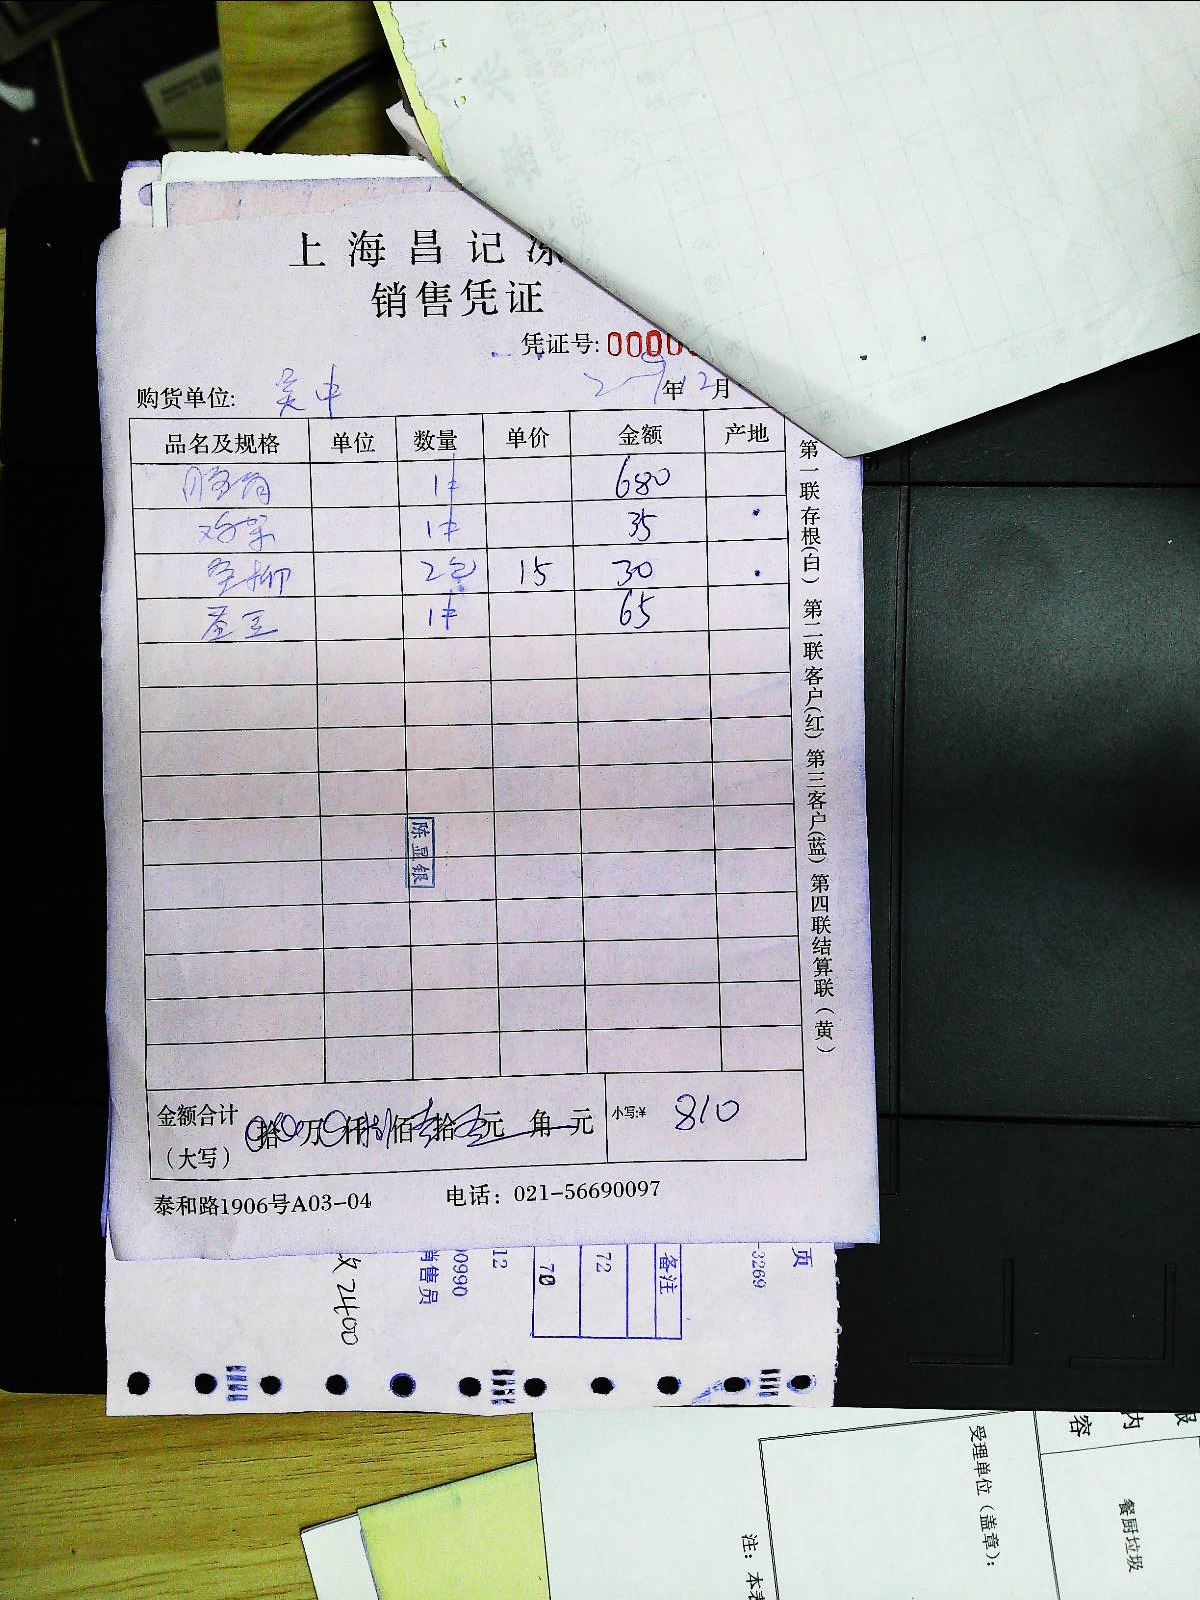 上海昌记
销售凭证
凭证号: 0000
购货单位: 吴中 年12月
品名及规格 单位 数量 单价 金额 产地
1件 680
鸡架 1件 35
2包 15 30
1件 65
陈显银
金额合计（大写） 拾 万 仟 佰 拾 元 角 元 小写:¥ 810
泰和路1906号A03-04 电话：021-56690097
第一联存根(白) 第二联客户(红) 第三客户(蓝) 第四联结算联（黄）
页
-3269
备注
72
70
12
00990
销售员
2400
内容
受理单位（盖章）：
餐厨垃圾
注：本表